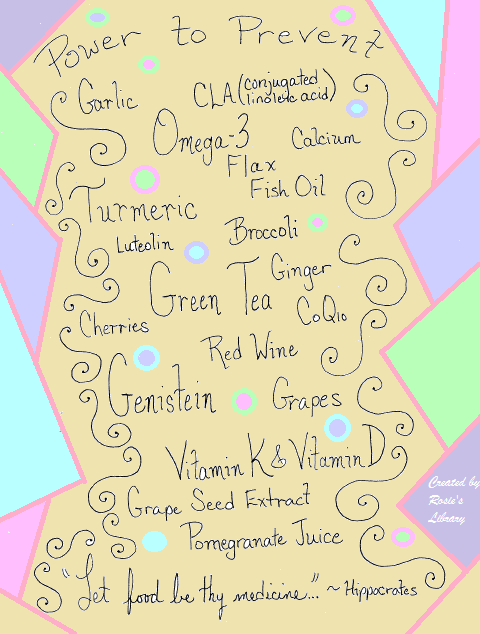 Power to Prevent
Garlic
CLA (conjugated
linoleic acid)
Omega-3
Calcium
Flax
Fish Oil
Turmeric
Luteolin
Broccoli
Ginger
Green Tea
CoQ10
Cherries
Red Wine
Genistein
Grapes
Vitamin K & Vitamin D
Grape Seed Extract
Pomegranate Juice
"Let food be thy medicine..." ~ Hippocrates
Created by
Rosie's
Library